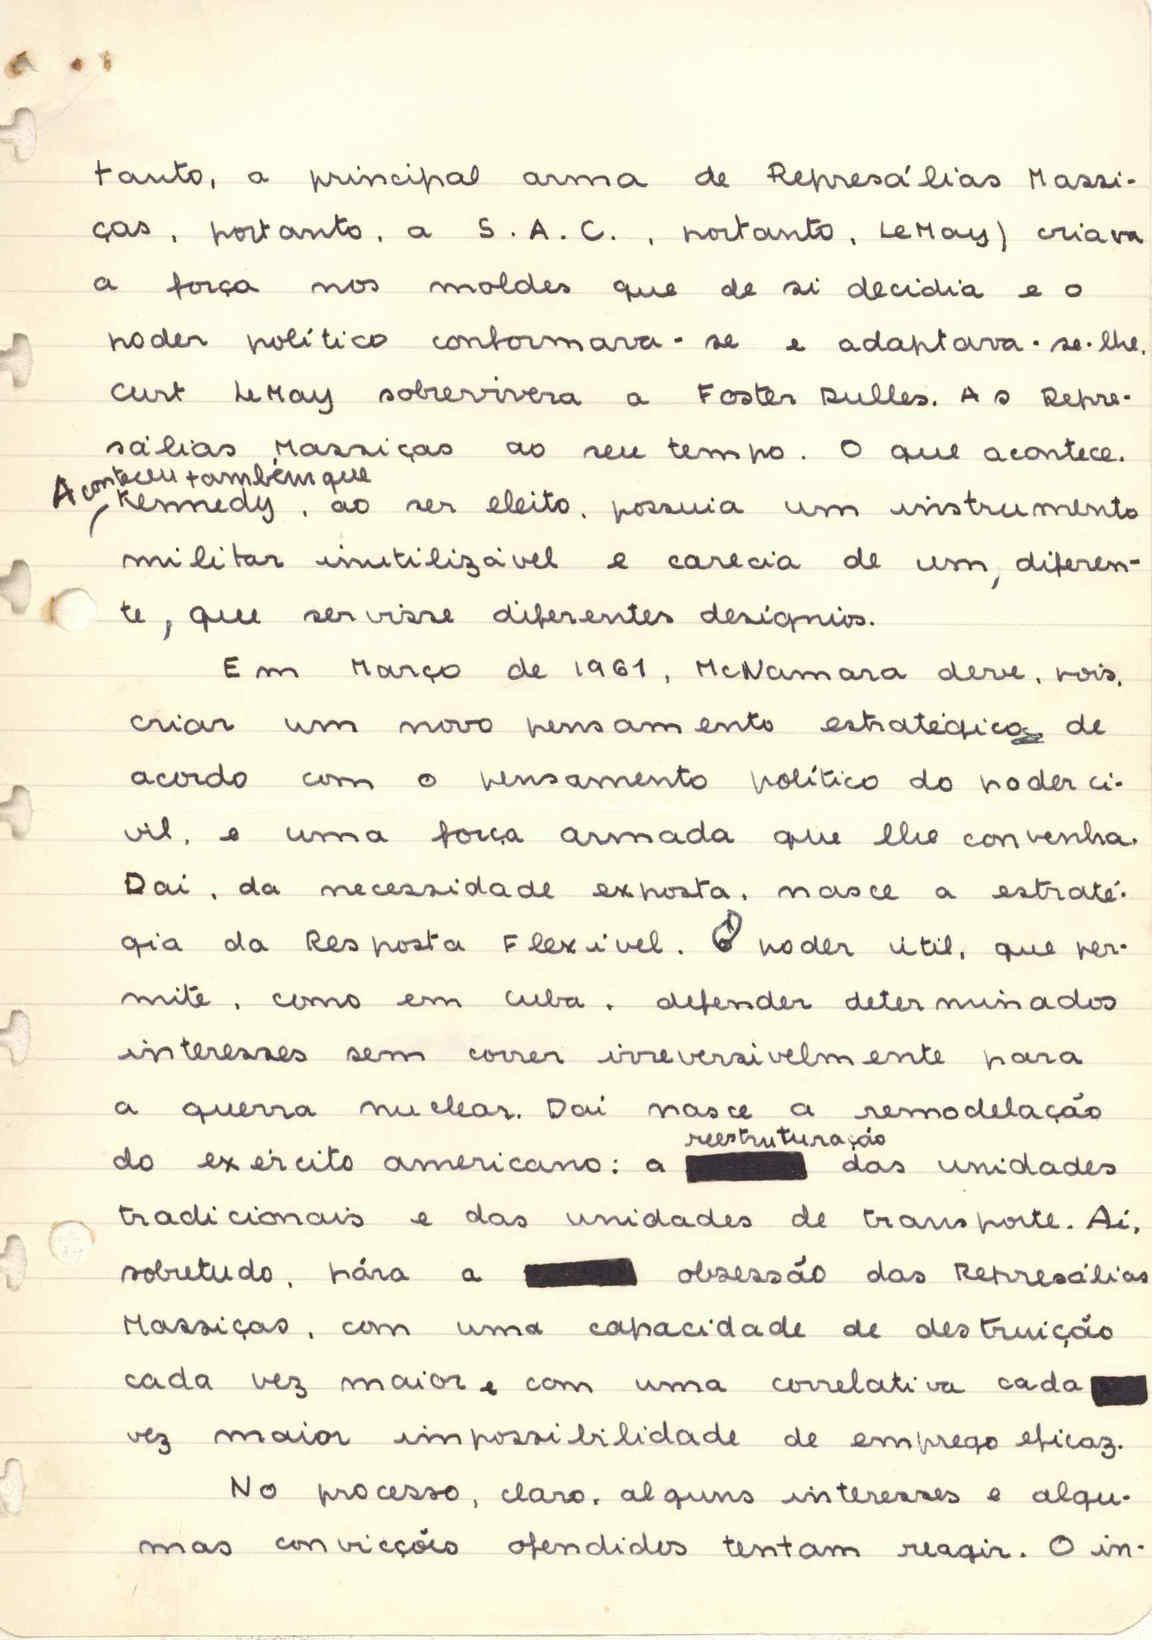 tanto, a principal arma de Represálias Massi-
ças, portanto, a S.A.C., portanto, LeMay) criava
a força nos moldes que de si decidia e o
poder político conformava-se e adaptava-se-lhe.
Curt LeMay sobrevivera a Foster Dulles. As Repre-
sálias Massiças ao seu tempo. O que acontece.
Aconteceu também que
Kennedy, ao ser eleito, possuia um instrumento
militar inutilizável e carecia de um, diferen-
te, que servisse diferentes desígnios.
Em Março de 1961, McNamara deve, pois,
criar um novo pensamento estratégico de
acordo com o pensamento político do poder ci-
vil, e uma força armada que lhe convenha.
Daí, da necessidade exposta, nasce a estraté-
gia da Resposta Flexível. O poder útil, que per-
mite, como em Cuba, defender determinados
interesses sem correr irreversivelmente para
a guerra nuclear. Daí nasce a remodelação
reestruturação
do exército americano: a das unidades
tradicionais e das unidades de transporte. Aí,
sobretudo, pára a obsessão das Represálias
Massiças, com uma capacidade de destruição
cada vez maior e com uma correlativa cada
vez maior impossibilidade de emprego eficaz.
No processo, claro, alguns interesses e algu-
mas convicções ofendidos tentam reagir. O in-